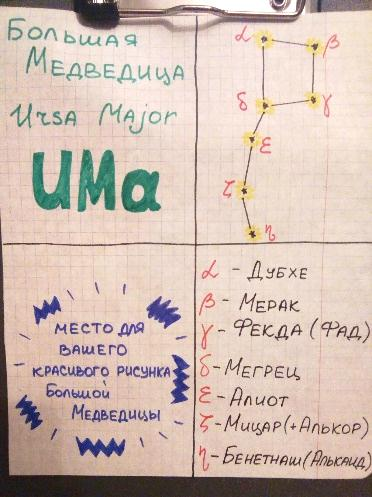 Большая
Медведица
Ursa Major
UMa
α
β
δ
γ
ε
ζ
η
МЕСТО ДЛЯ
ВАШЕГО
КРАСИВОГО РИСУНКА
Большой
Медведицы
α - Дубхе
β - Мерак
γ - Фекда (Фад)
δ - Мегрец
ε - Алиот
ζ - Мицар (+Алькор)
η - Бенетнаш (Алькаид)